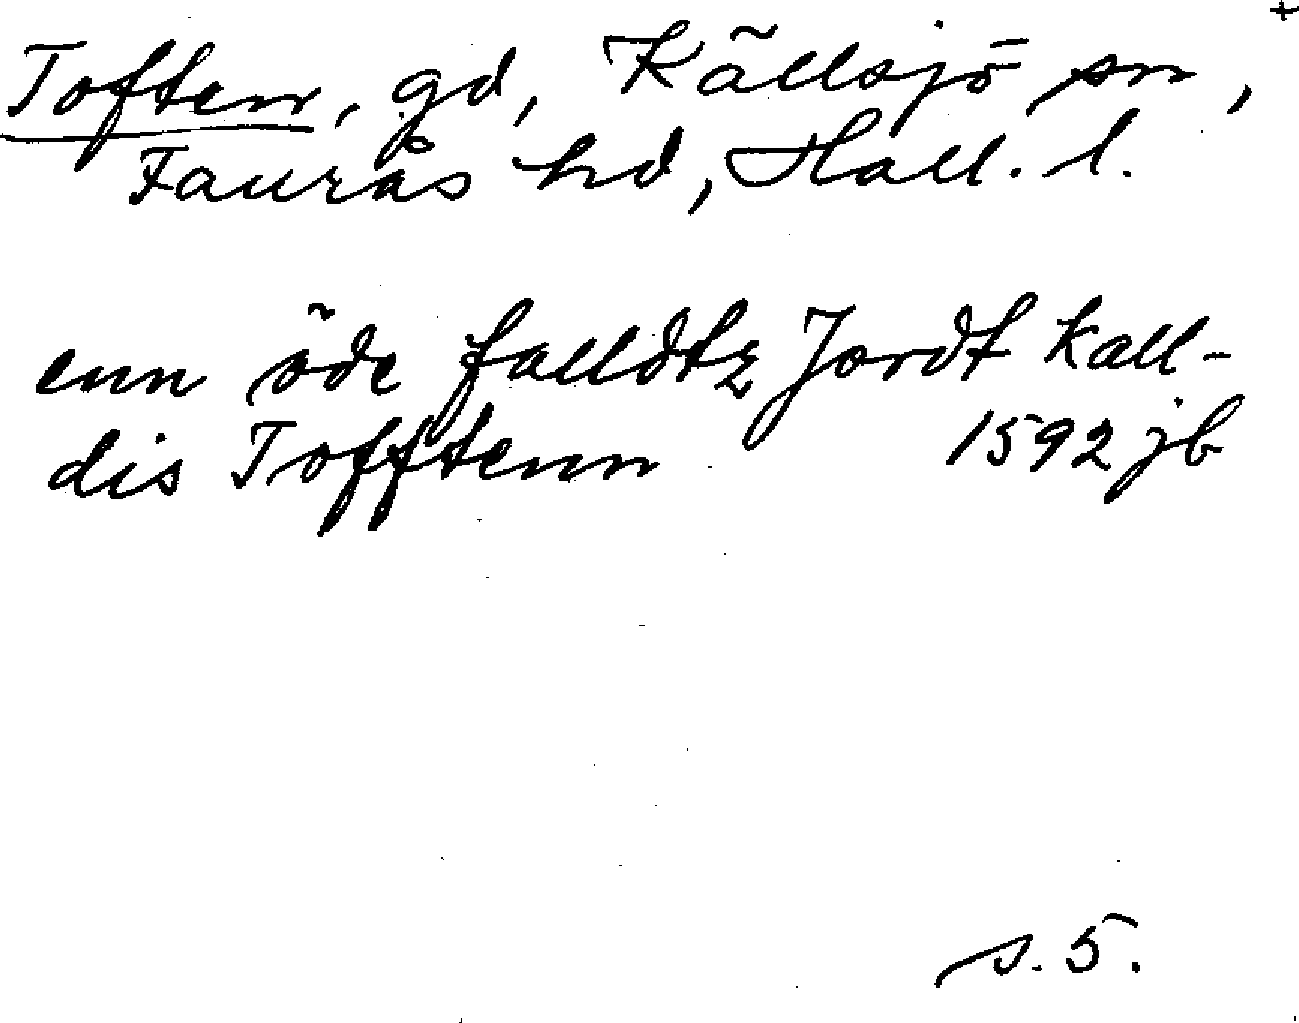 +
Toften, gd, Källsjö sn,
Faurås hd, Hall. l.
enn öde falldtz Jordt kall-
dis Tofftenn 1592 jb
s. 5.